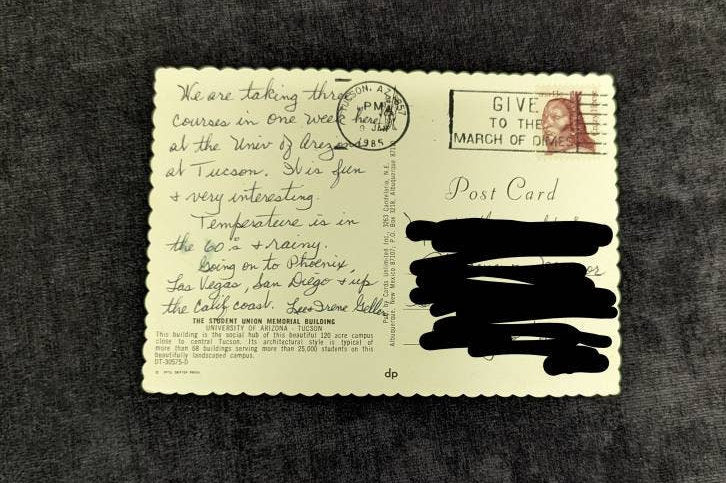 We are taking three
courses in one week here
at the Univ of Arizona
at Tucson. It is fun
+ very interesting.
Temperature is in
the 60's + rainy.
Going on to Phoenix,
Las Vegas, San Diego + up
the Calif coast. Lee + Irene Geller
THE STUDENT UNION MEMORIAL BUILDING
UNIVERSITY OF ARIZONA - TUCSON
This building is the social hub of this beautiful 120 acre campus
close to central Tucson. Its architectural style is typical of
more than 68 buildings serving more than 25,000 students on this
beautifully landscaped campus.
DT-30575-D
DEXTER PRESS
Pub. by Cards Unlimited Inc., 3263 Candelaria, N.E.
Albuquerque, New Mexico 87107. P.O. Box 3219, Albuquerque
TUCSON, AZ 857
PM
9 JAN
1985
GIVE
TO THE
MARCH OF DIMES
Post Card
dp